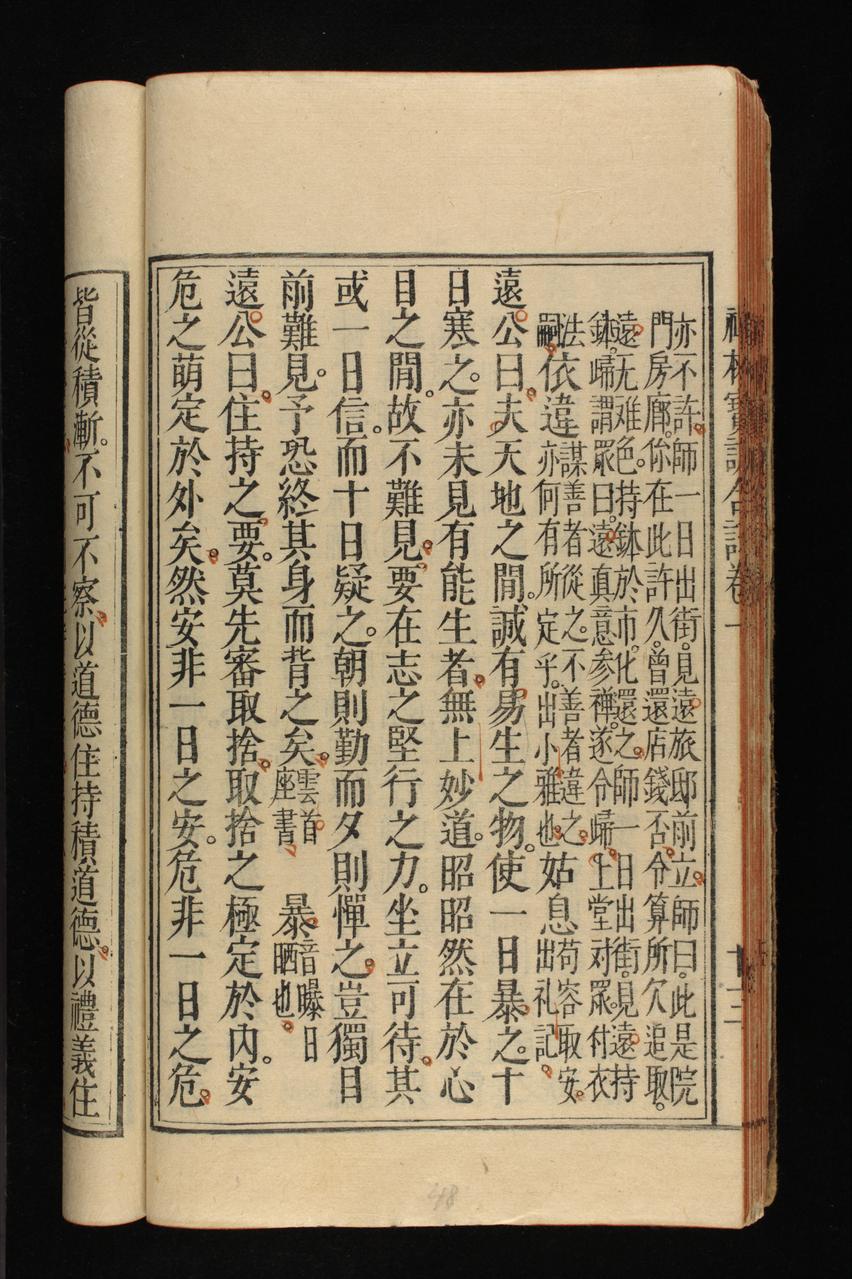 禪林寶訓合註卷一 十三
亦不許師一日出街見遠旅邸前立師曰此是院
門房廊你在此許久曾還店錢否令算所欠追取
遠无难色持鉢於市化還之師一日出街見遠持
鉢歸謂眾曰遠真意参禅遂令歸上堂对眾付衣
法嗣依違謀善者從之不善者違之亦何有所定乎出小雅也姑息苟容取安出礼記
遠公曰夫天地之間誠有易生之物使一日暴之十
日寒之亦未見有能生者無上妙道昭昭然在於心
目之間故不難見要在志之堅行之力坐立可待其
或一日信而十日疑之朝則勤而夕則憚之豈獨目
前難見予恐終其身而背之矣雲首座書 暴音曝日晒也
遠公曰住持之要莫先審取捨取捨之極定於內安
危之萌定於外矣然安非一日之安危非一日之危
皆從積漸不可不察以道德住持積道德以禮義住
48